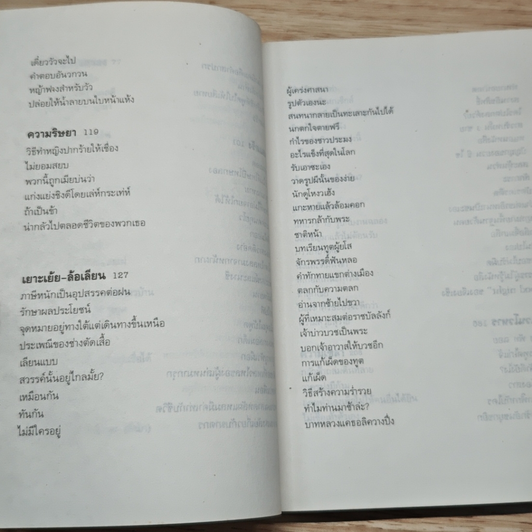 เดี๋ยววัวจะไป
คำตอบอันวกวน
หญ้าฟางสำหรับวัว
ปล่อยให้น้ำลายบนใบหน้าแห้ง
ความริษยา 119
วิธีทำหญิงปากร้ายให้เชื่อง
ไม่ยอมสยบ
พวกนี้ถูกเมียบ่นว่า
แก่งแย่งชิงดีโดยเล่ห์กระเท่ห์
ถ้าเป็นข้า
น่ากลัวไปตลอดชีวิตของพวกเธอ
เยาะเย้ย-ล้อเลียน 127
ภาษีหนักเป็นอุปสรรคต่อฝน
รักษาผลประโยชน์
จุดหมายอยู่ทางใต้แต่เดินทางขึ้นเหนือ
ประเพณีของช่างตัดเสื้อ
เลียนแบบ
สวรรค์นั้นอยู่ไกลมั้ย?
เหมือนกัน
ทันกัน
ไม่มีใครอยู่
ผู้เคร่งศาสนา
รูปตัวเองนะ
สนทนากลายเป็นทะเลาะกันไปได้
นกตกใจตายฟรี
กำไรของชาวประมง
อะไรแข็งที่สุดในโลก
รับเอาซะเอง
วาดรูปผีนั้นของง่าย
นักดูโหงวเฮ้ง
แกะหายแล้วล้อมคอก
ทหารกล้ากับพระ
ชาติหน้า
บทเรียนทูตผู้ยโส
จักรพรรดิ์ฟันหลอ
คำทักทายแขกต่างเมือง
ตลกกับความตลก
อ่านจากซ้ายไปขวา
ผู้ที่เหมาะสมต่อราชบัลลังก์
เจ้าบ่าวบวชเป็นพระ
บอกเจ้าอาวาสให้บวชอีก
การแก้เผ็ดของทูต
แก้เผ็ด
วิธีสร้างความร่ำรวย
ทำไมท่านมาช้าล่ะ?
บาทหลวงแคธอลิควางปึ่ง